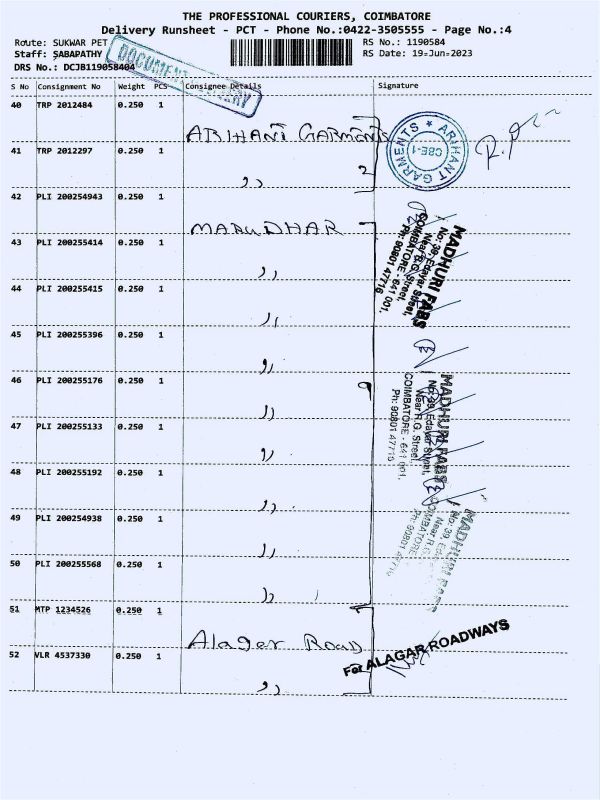 THE PROFESSIONAL COURIERS, COIMBATORE
Delivery Runsheet - PCT - Phone No.:0422-3505555 - Page No.:4
Route: SUKWAR PET
RS No.: 1190584
Staff: SABAPATHY
RS Date: 19-Jun-2023
DRS No.: DCJB119058404
DOCUMENT DELIVERY
S No Consignment No Weight PCS Consignee Details Signature
40 TRP 2012484 0.250 1
ARIHANT GARMENTS
ARIHANT GARMENTS ★ CBE-1
41 TRP 2012297 0.250 1
,, 2
42 PLI 200254943 0.250 1
MARUDHAR
43 PLI 200255414 0.250 1
,,
44 PLI 200255415 0.250 1
,,
45 PLI 200255396 0.250 1
,,
46 PLI 200255176 0.250 1
,, 9
47 PLI 200255133 0.250 1
,,
48 PLI 200255192 0.250 1
,,
49 PLI 200254938 0.250 1
,,
50 PLI 200255568 0.250 1
,,
MADHURI FABS
No: 39, Edayar Street,
Near R.G. Street,
COIMBATORE - 641 001.
Ph: 90801 47716
MADHURI FABS
No: 39, Edayar Street,
Near R.G. Street,
COIMBATORE - 641 001.
Ph: 90801 47716
MADHURI FABS
No: 39, Edayar
Near R.G.
COIMBATORE
Ph: 90801 47716
51 MTP 1234526 0.250 1
Alagar Road
52 VLR 4537330 0.250 1
,,
For ALAGAR ROADWAYS